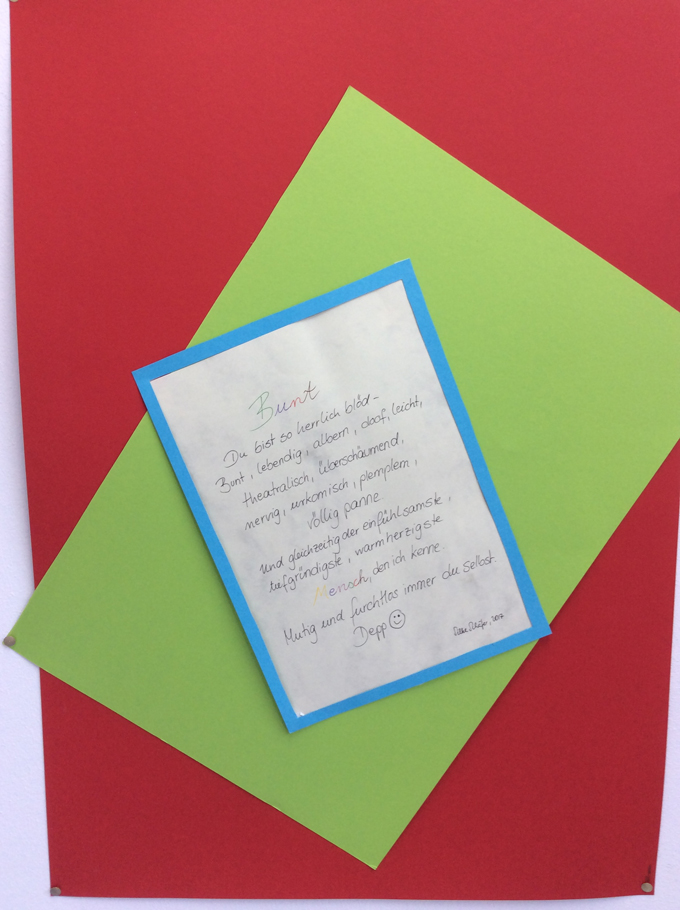 Bunt
Du bist so herrlich blöd-
Bunt, lebendig, albern, doof, leicht,
theatralisch, überschäumend,
nervig, urkomisch, plemplem,
völlig panne
und gleichzeitig der einfühlsamste,
tiefgründigste, warmherzigste
Mensch, den ich kenne.
Mutig und furchtlos immer du selbst.
Depp